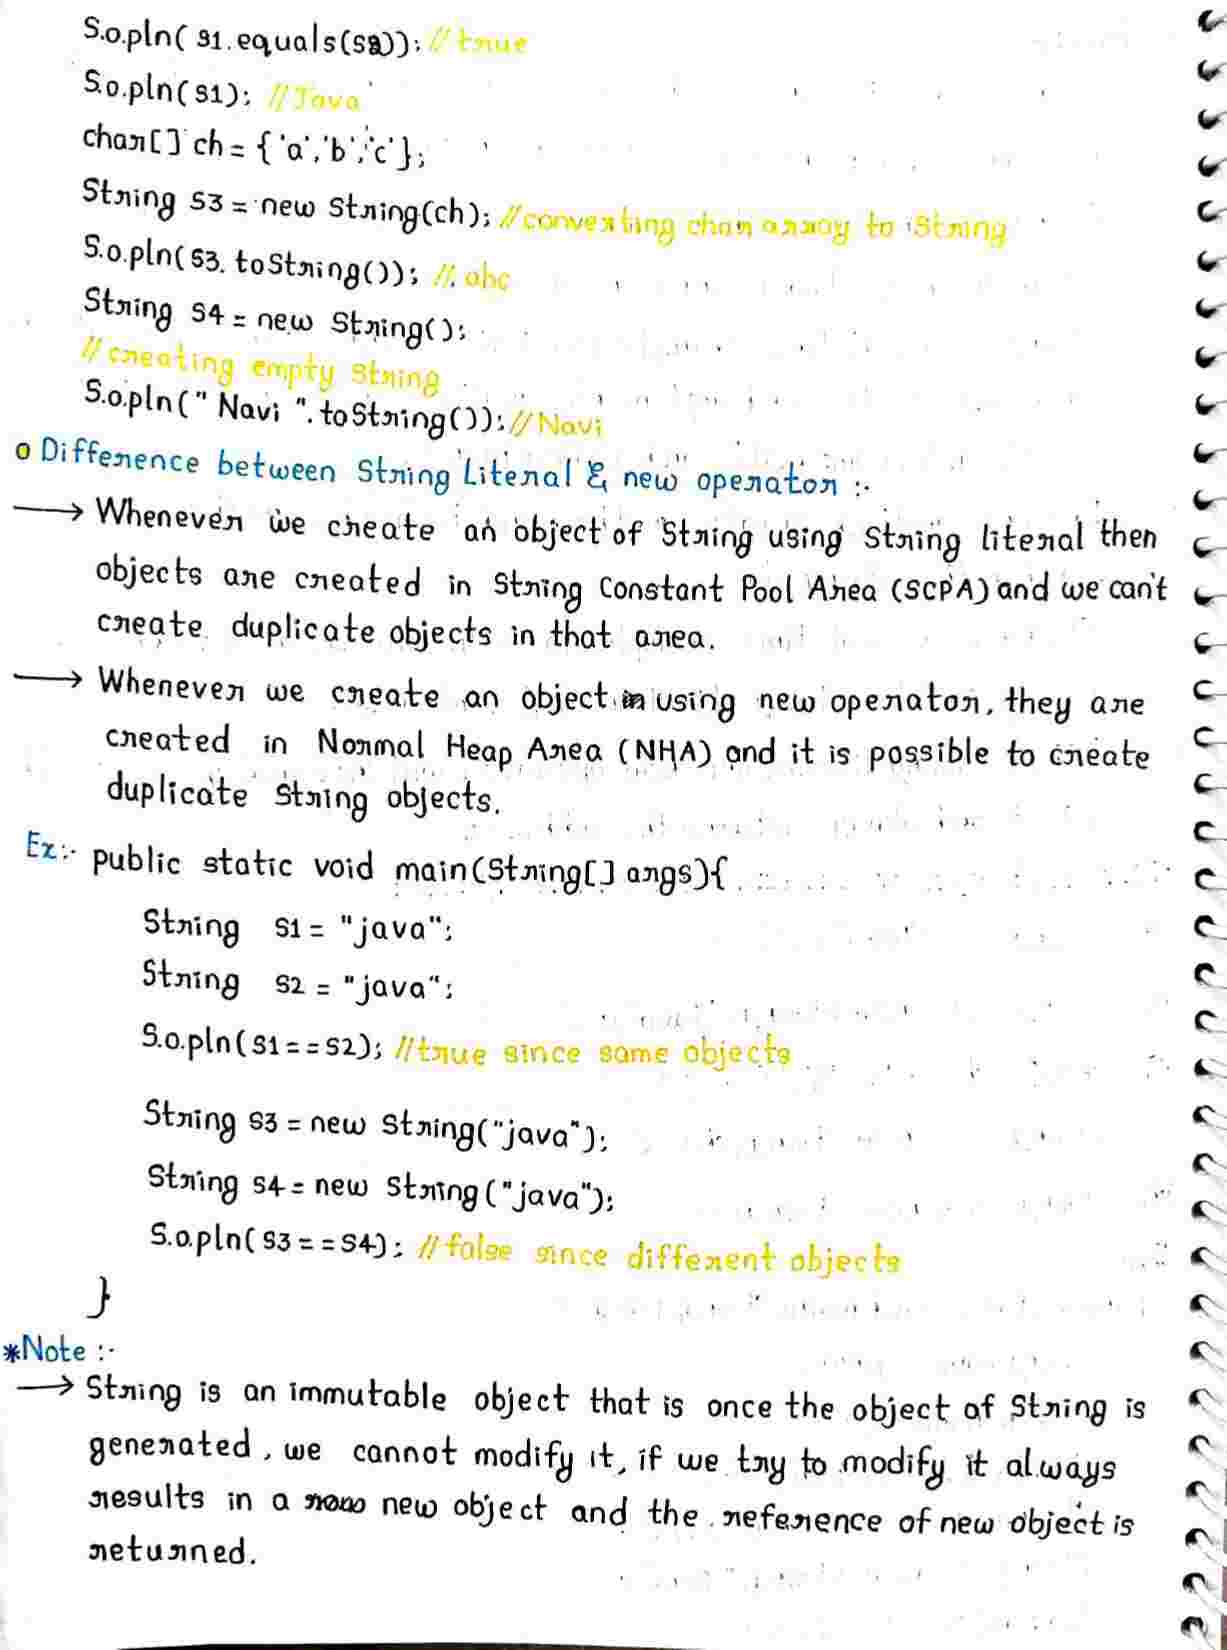 S.o.pln( s1.equals(s2)); //true
S.o.pln(s1); //Java
char[] ch = { 'a','b','c'};
String s3 = new String(ch); //converting char array to String
S.o.pln(s3. toString()); // abc
String s4 = new String();
// creating empty string
S.o.pln(" Navi ". toString()); //Navi
o Difference between String Literal & new operator :-
→ Whenever we create an object of String using String literal then
objects are created in String Constant Pool Area (SCPA) and we can't
create duplicate objects in that area.
→ Whenever we create an object using new operator, they are
created in Normal Heap Area (NHA) and it is possible to create
duplicate string objects.
Ex:- public static void main(String[] args){
String s1 = "java";
String s2 = "java";
S.o.pln(s1==s2); //true since same objects
String s3 = new String("java");
String s4 = new String("java");
S.o.pln(s3==s4); //false since different objects
}
*Note :-
→ String is an immutable object that is once the object of String is
generated, we cannot modify it, if we try to modify it always
results in a new object and the reference of new object is
returned.